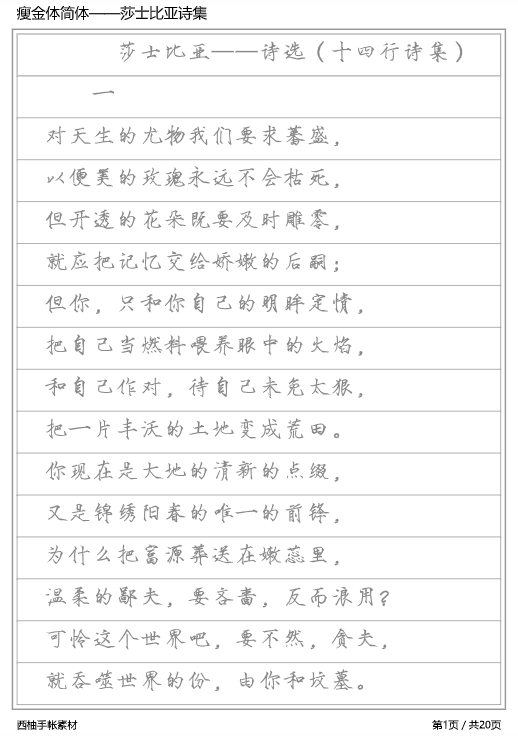 瘦金体简体——莎士比亚诗集
莎士比亚——诗选（十四行诗集）
一
对天生的尤物我们要求蕃盛，
以便美的玫瑰永远不会枯死，
但开透的花朵既要及时雕零，
就应把记忆交给娇嫩的后嗣；
但你，只和你自己的明眸定情，
把自己当燃料喂养眼中的火焰，
和自己作对，待自己未免太狠，
把一片丰沃的土地变成荒田。
你现在是大地的清新的点缀，
又是锦绣阳春的唯一的前锋，
为什么把富源葬送在嫩蕊里，
温柔的鄙夫，要吝啬，反而浪用？
可怜这个世界吧，要不然，贪夫，
就吞噬世界的份，由你和坟墓。
西柚手帐素材
第1页 / 共20页